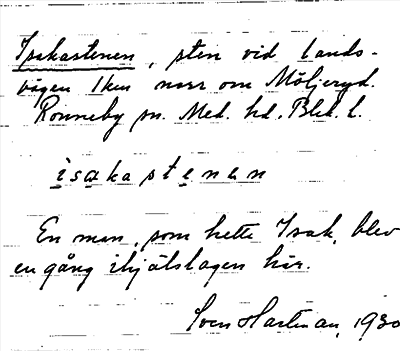 Isakastenen, sten vid lands-
vägen 1 km norr om Möljeryd.
Ronneby sn. Med. hd. Blek. l.
isakastenan
En man, som hette Isak, blev
en gång ihjälslagen här.
Sven Hartman, 1930